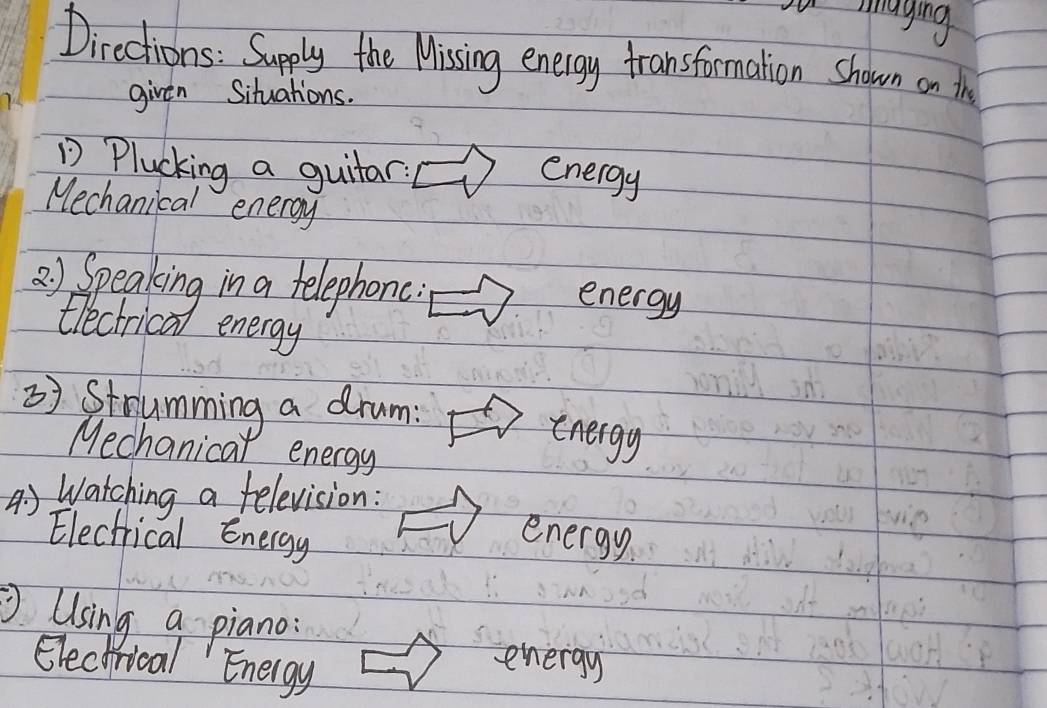 imaging
Directions: Supply the Missing energy transformation shown on the
given Situations.
1) Plucking a guitar: energy
Mechanical energy
2.) Speaking in a telephone: energy
Electrical energy
3) Strumming a drum: energy
Mechanical energy
4.) Watching a television:
Electrical Energy energy
Using a piano:
Electrical Energy energy